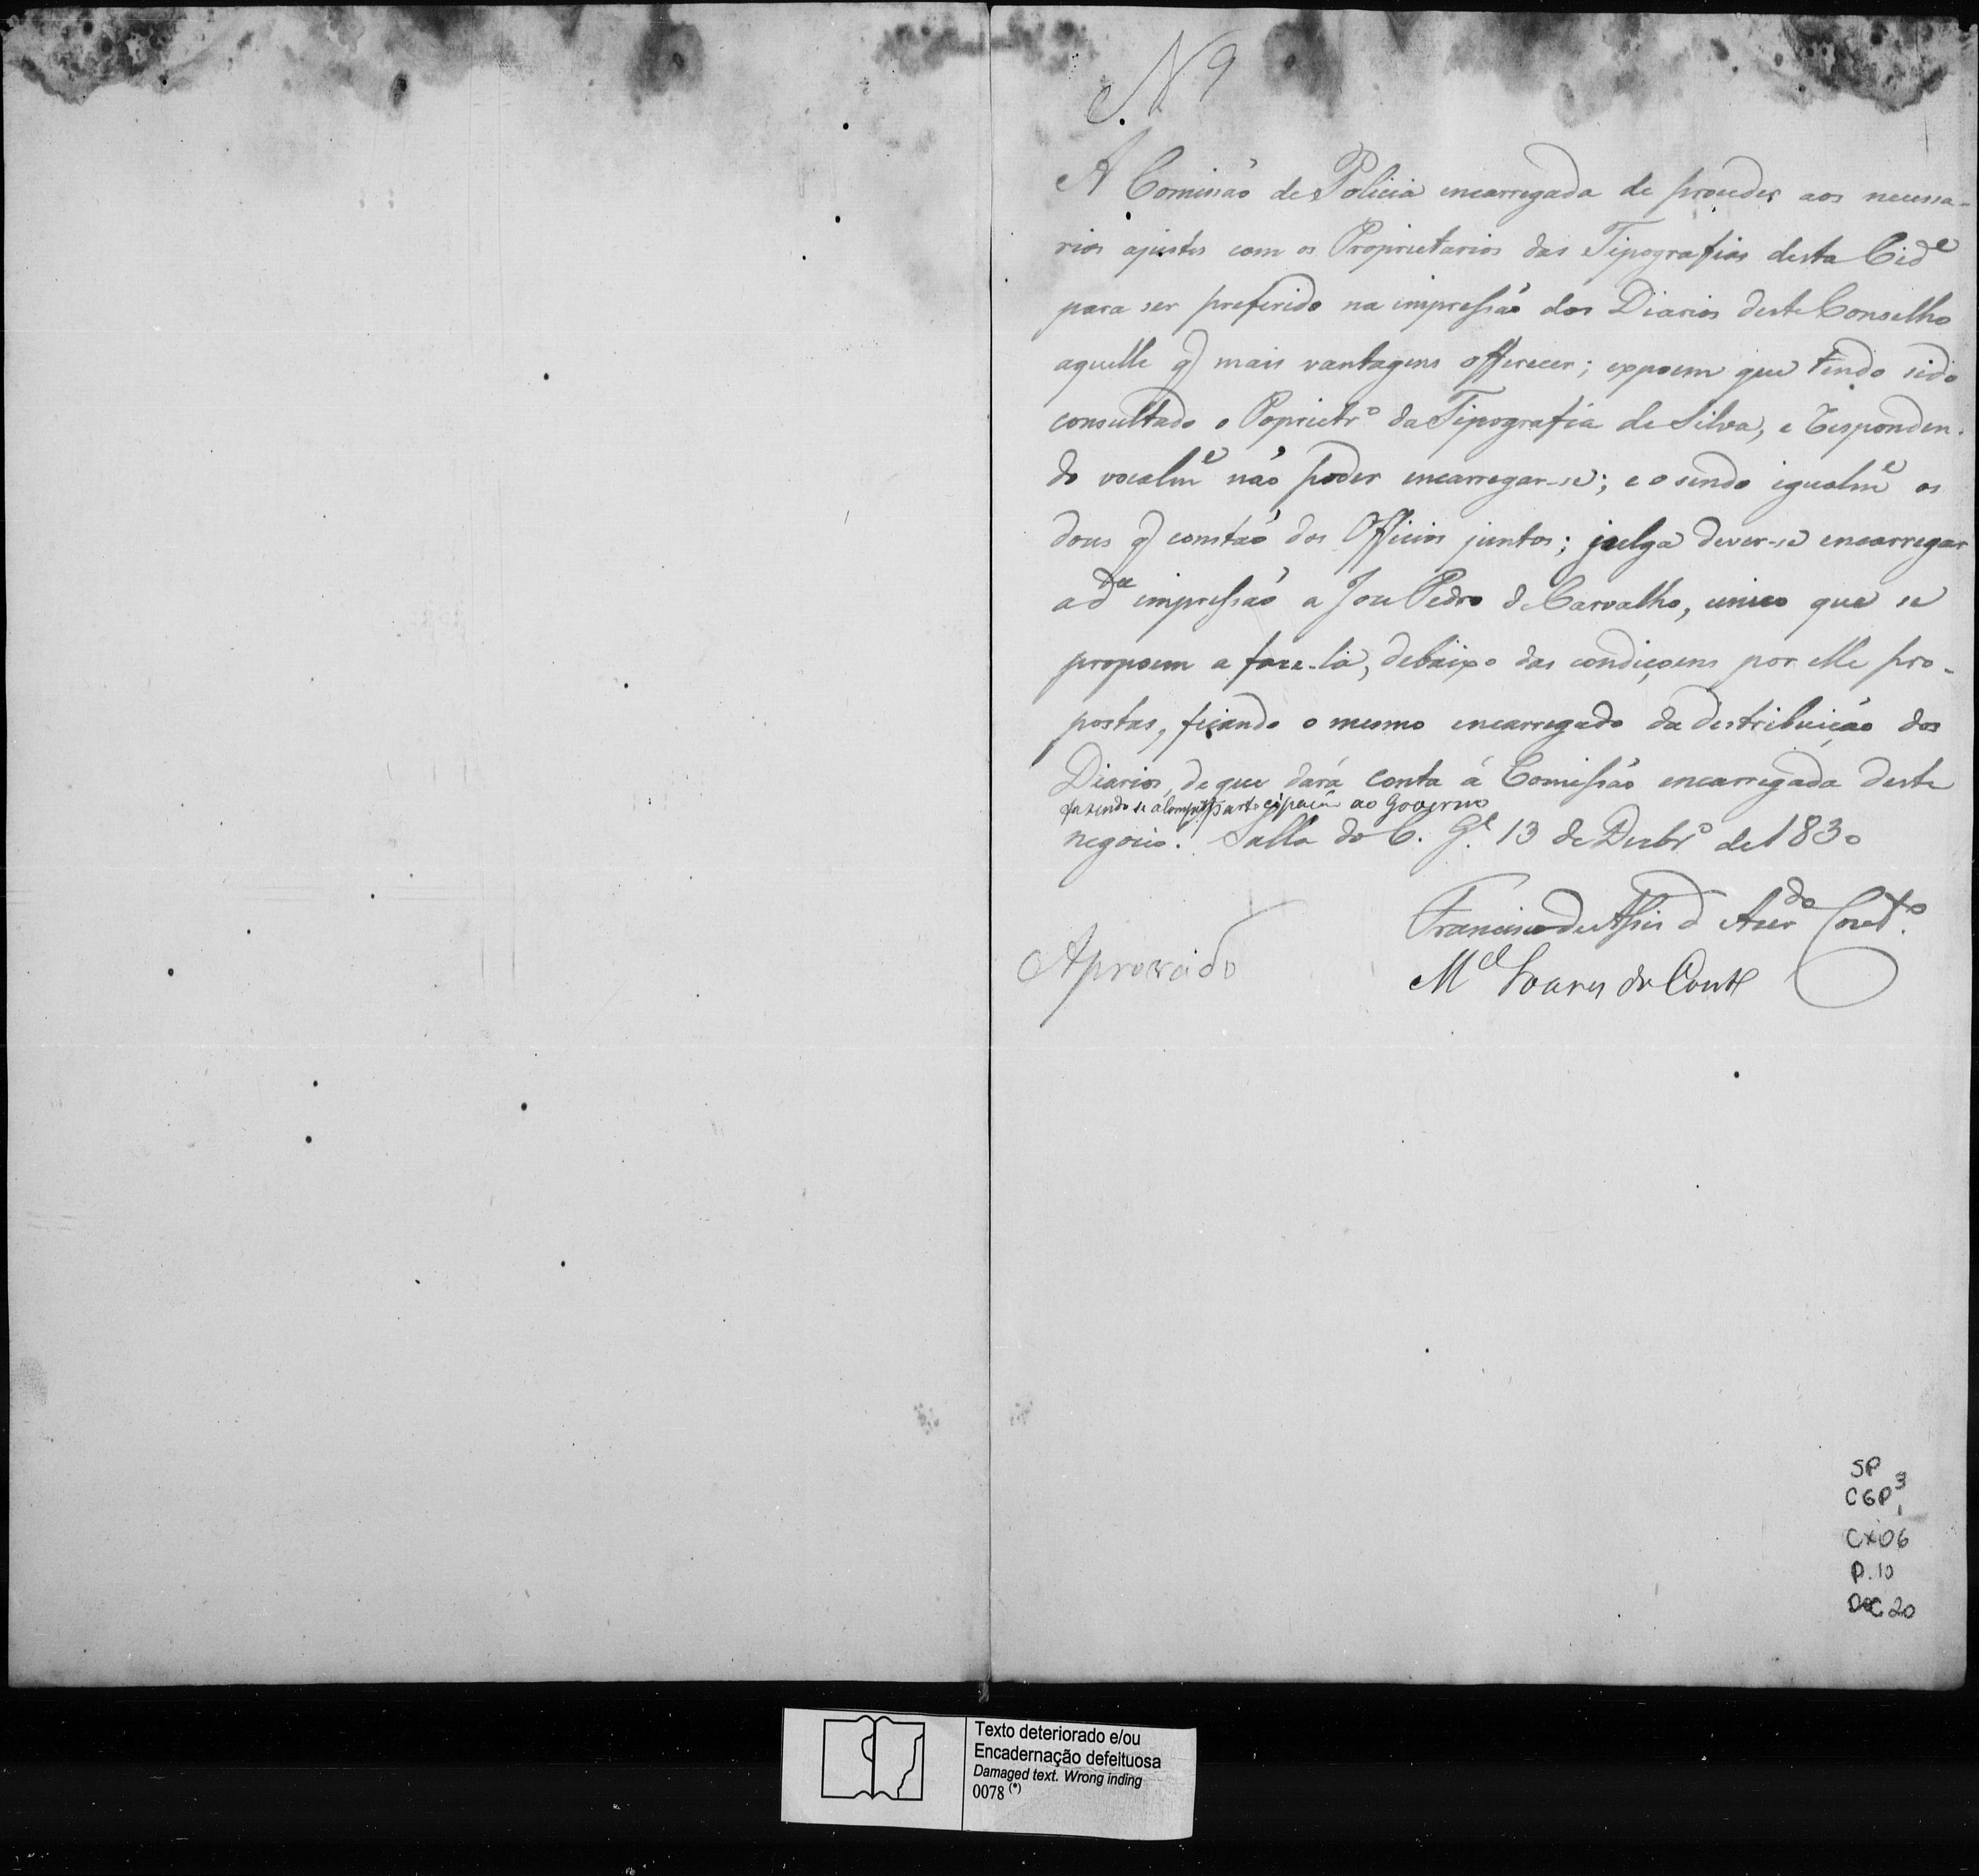 N 9
A Comissaõ de Policia encarregada de proceder aos necessa-
rios ajustes com os Proprietarios das Tipografias desta Cid.e
para ser preferido na impressaõ dos Diarios deste Conselho
aquelle q mais vantagens offerecer; expoem que tendo sido
consultado o Poprietr.o da Tipografia de Silva, e responden-
do vocalm.e naõ poder encarregar-se; e o sendo igualm.e os
dous q constaõ dos Officios juntos; julga dever-se encarregar
a d.ta impressaõ a Joze Pedro de Carvalho, unico que se
propoem a faze-la, debaixo das condiçoens por elle pro-
postas, ficando o mesmo encarregado da destribuiçaõ dos
Diarios, de que dará conta á Comissaõ encarregada deste
fazendo se a participaçaõ ao Governo
negocio. Salla do C. G.l 13 de Dezbr.o de 1830
Francisco de Assis d Azer.do Cout.o
M.el Soares do Cout.o
Aprovado
SP
CGP 3
CX06
P.10
DOC 20
Texto deteriorado e/ou
Encadernação defeituosa
Damaged text. Wrong inding
0078 (*)